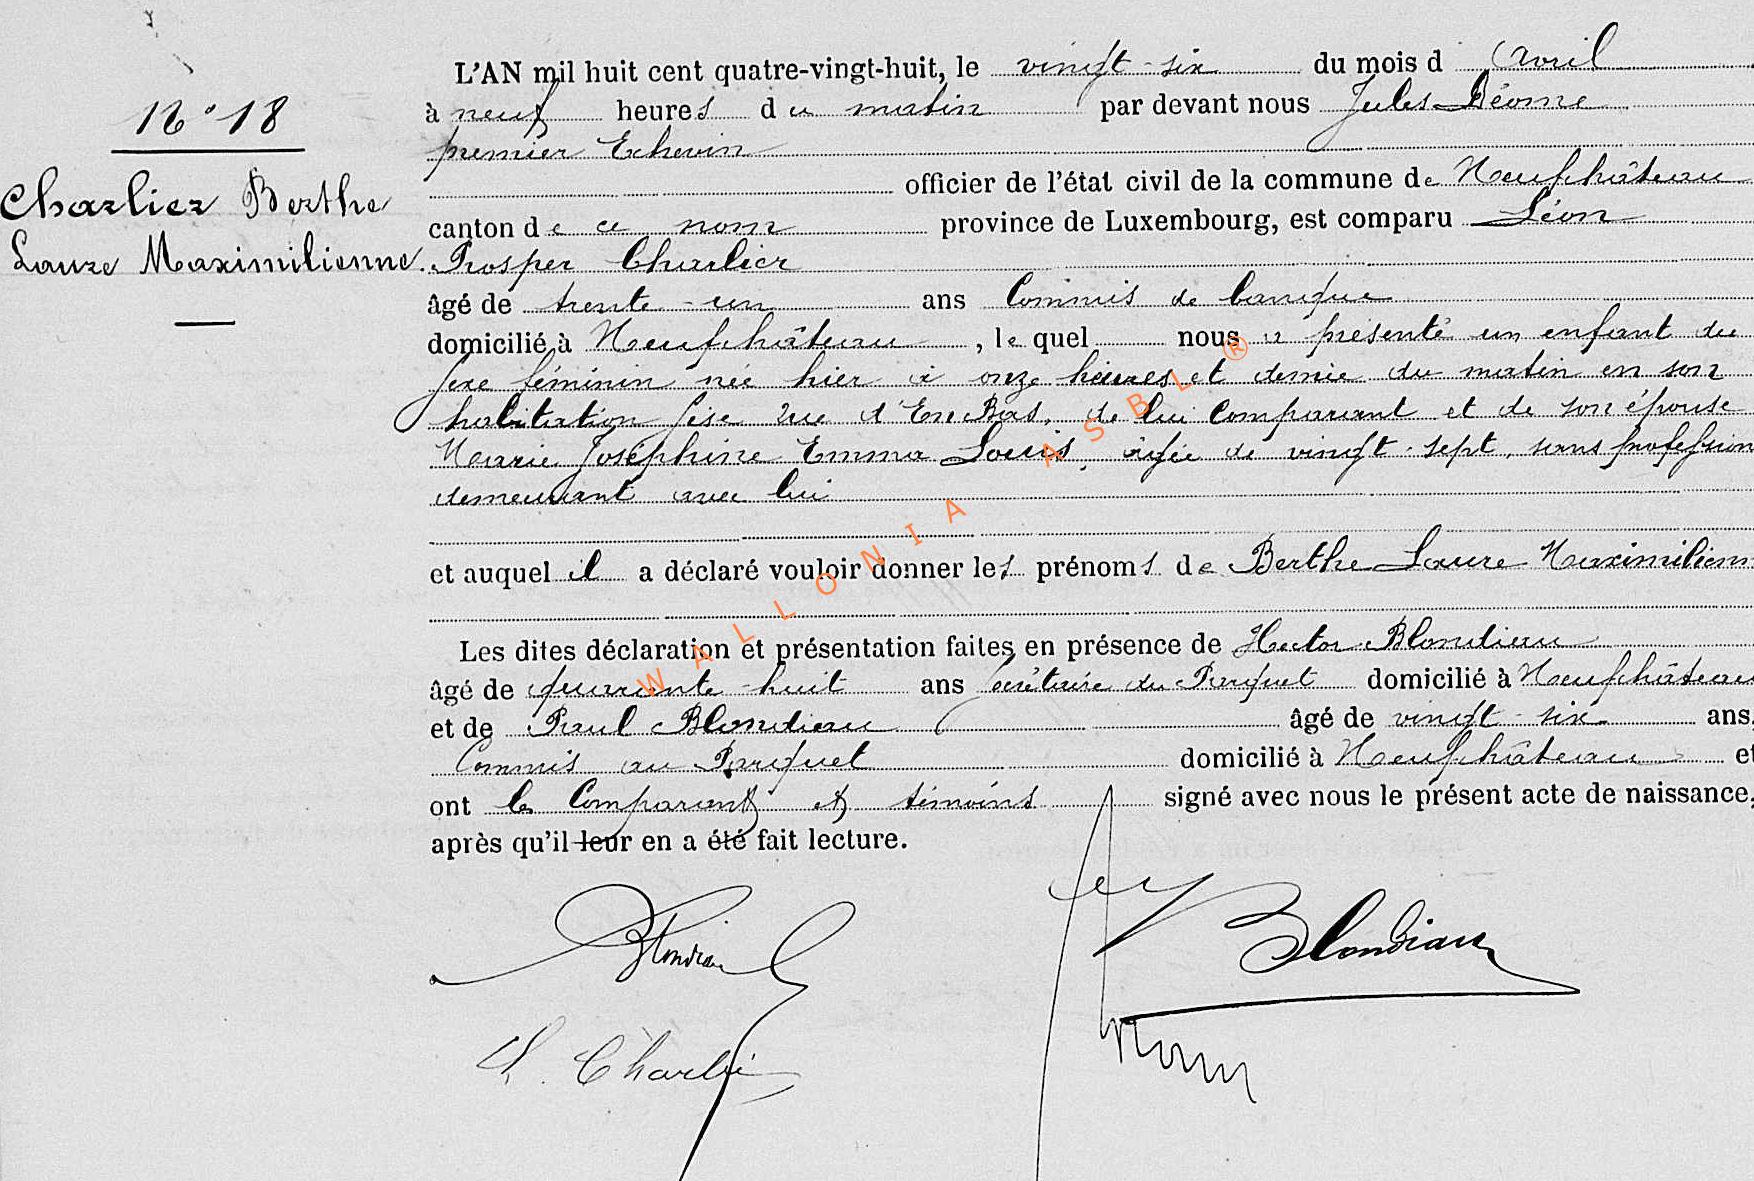 N° 18
Charlier Berthe
Laure Maximilienne.
L'AN mil huit cent quatre-vingt-huit, le vingt-six du mois d Avril
à neuf heures du matin par devant nous Jules Léome
premier Echevin
officier de l'état civil de la commune de Neufchâteau
canton de ce nom province de Luxembourg, est comparu Léon
Prosper Charlier
âgé de trente-un ans Commis de banque
domicilié à Neufchâteau, le quel nous a présenté un enfant du
sexe féminin née hier à onze heures et demie du matin en son
habitation sise rue d'En Bas, de lui Comparant et de son épouse
Marie Joséphine Emma Louis, âgée de vingt-sept, sans profession
demeurant avec lui
et auquel il a déclaré vouloir donner les prénoms de Berthe Laure Maximilienn
Les dites déclaration et présentation faites en présence de Hector Blondiau
âgé de quarante-huit ans secrétaire du Parquet domicilié à Neufchâteau
et de Paul Blondiau âgé de vingt-six ans,
Commis au Parquet domicilié à Neufchâteau et
ont les Comparant et témoins signé avec nous le présent acte de naissance,
après qu'il leur en a été fait lecture.
Blondiau
Blondiau
L. Charlier
WALLONIA ASBL ®